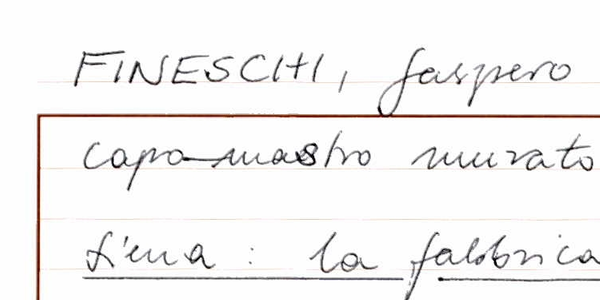 FINESCHI, Gaspero
capo-mastro murato
Siena : la fabbrica